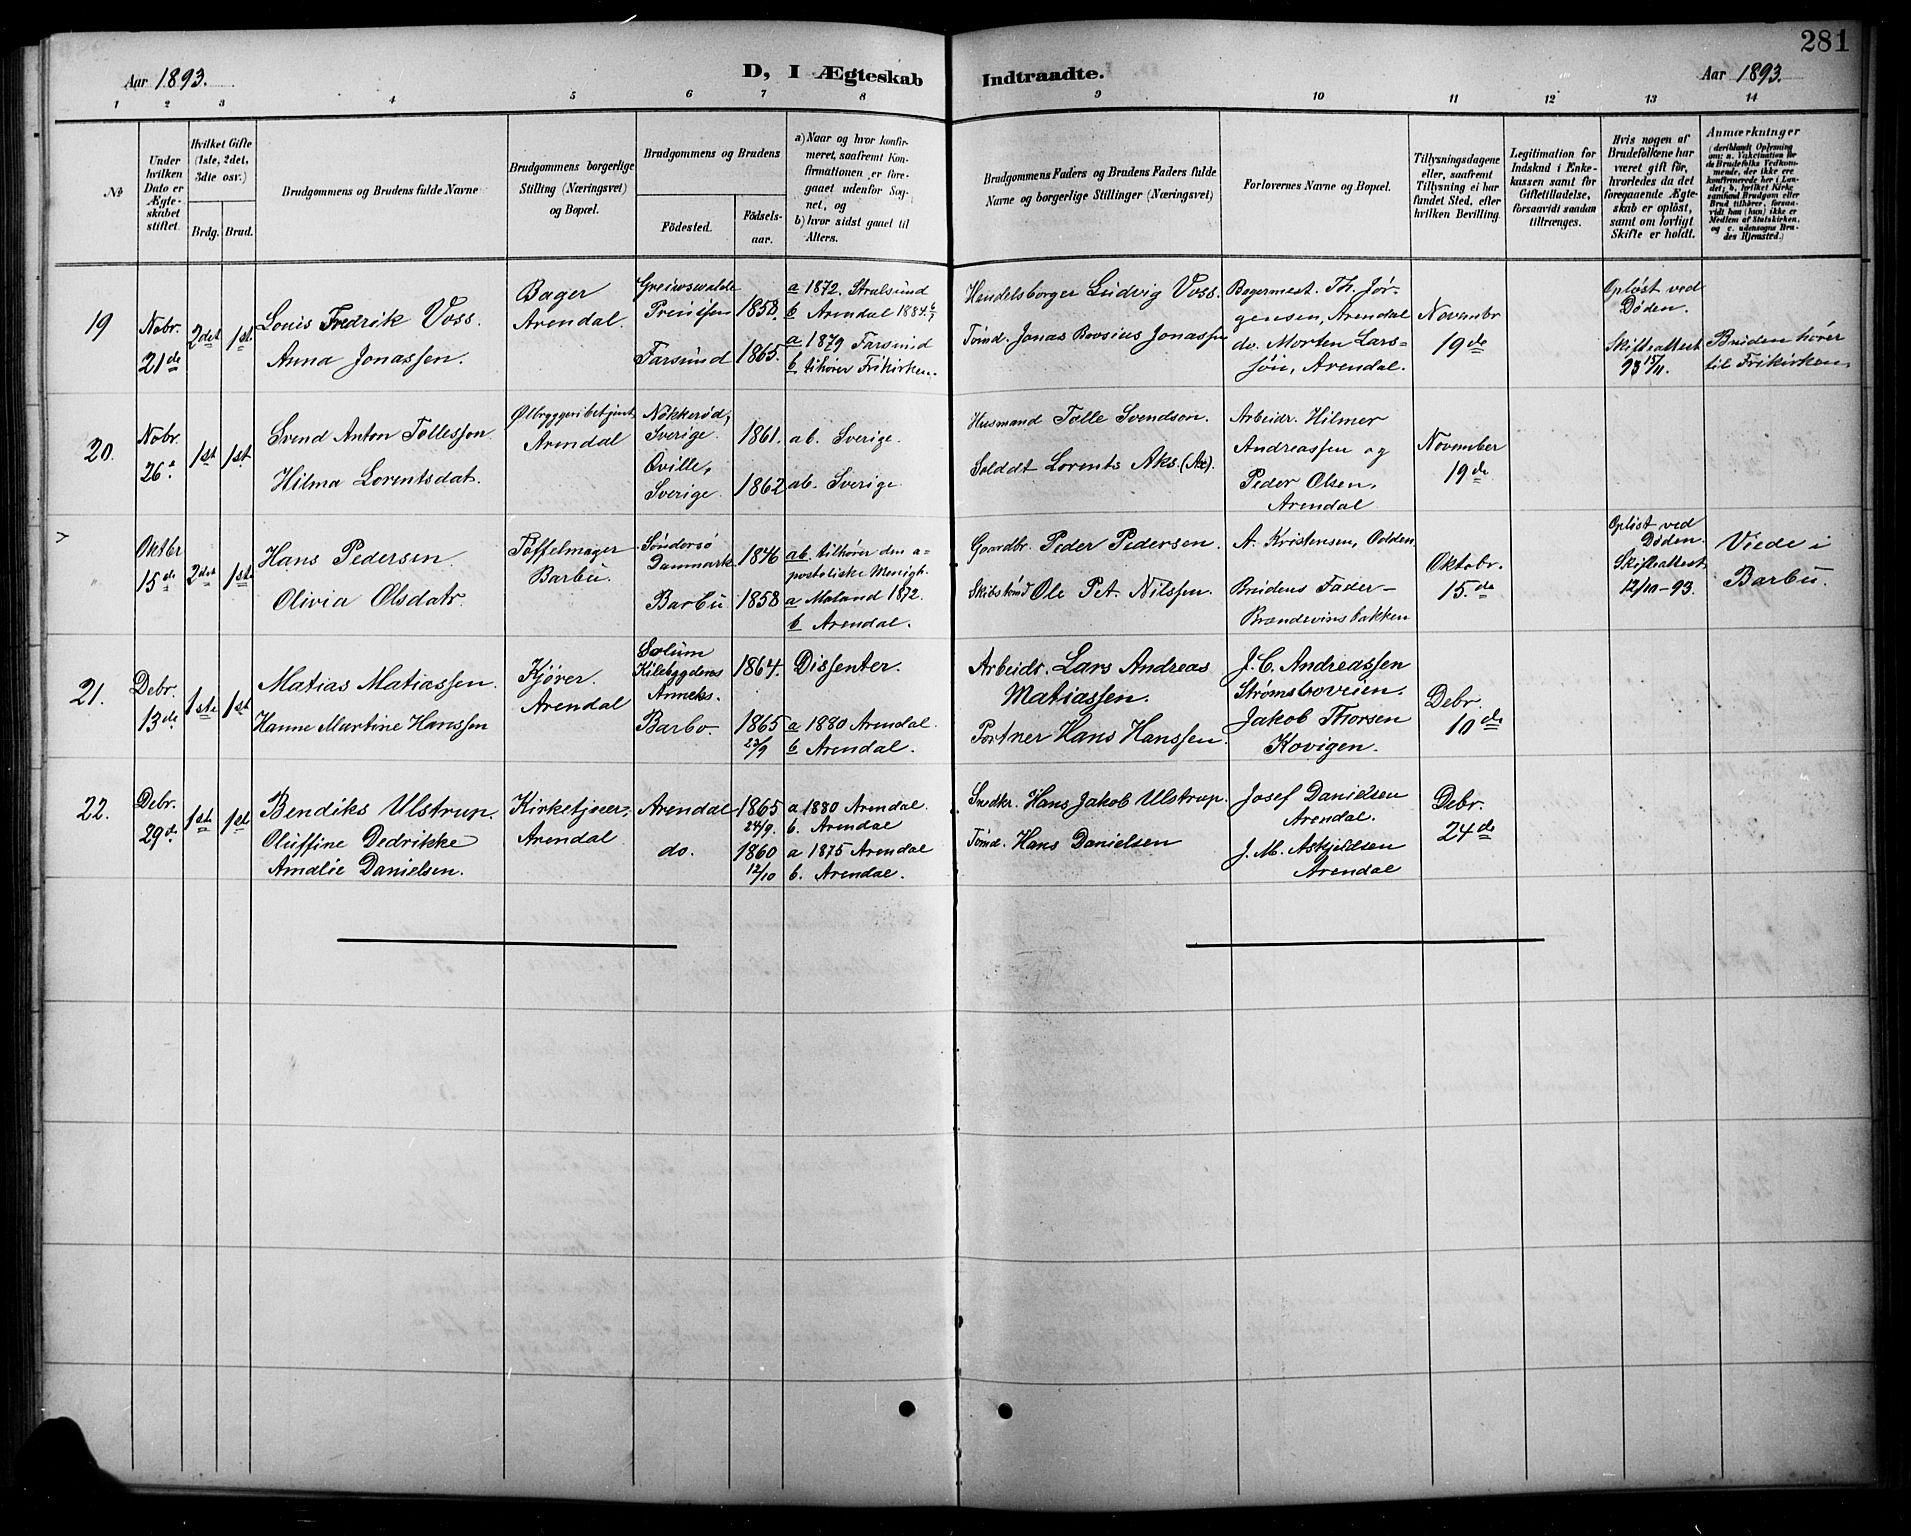 281
Aar 1893.
D, I Ægteskab Indtraadte.
Aar 1893.
1 2 3 4 5 6 7 8 9 10 11 12 13 14
No
Under
hvilken
Dato er
Ægte-
skabet
stiftet.
Hvilket Gifte
(1ste, 2det,
3die osv.)
Brdg. Brud.
Brudgommens og Brudens fulde Navne
Brudgommens borgerlige
Stilling (Næringsvei)
og Bopæl.
Brudgommens og Brudens
Födested.
Födsels-
aar.
a) Naar og hvor konfir-
meret, saafremt Kon-
firmationen er fore-
gaaet udenfor Sog-
net, og
b) hvor sidst gaaet til
Alters.
Brudgommens Faders og Brudens Faders fulde
Navne og borgerlige Stillinger (Næringsvei)
Forlovernes Navne og Bopæl.
Tillysningsdagene
eller, saafremt
Tillysning ei har
fundet Sted, efter
hvilken Bevilling.
Legitimation for
Indskud i Enke-
kassen samt for
Giftetilladelse,
forsaavidt saadan
tiltrænges.
Hvis nogen af
Brudefolkene har
været gift för,
hvorledes da det
foregaaende Ægte-
skab er oplöst,
samt om lovligt
Skifte er holdt.
Anmærkninger
(deriblandt Oplysning
om: a. Vakcination for
de Brudefolks Vedkom-
mende, der ikke ere
konfirmerede her i Lan-
det; b, hvilket Kirke-
samfund Brudgom eller
Brud tilhörer, forsaa-
vidt han (hun) ikke er
Medlem af Statskirken,
og c. udensogns Bru-
des Hjemsted.)
19
Nobr.
21de
2det 1st
Louis Fredrik Voss.
Anna Jonassen.
Bager
Arendal.
Preussen 1858.
Farsund 1865.
a 1872. Stralsund
b Arendal 1884
a 1879 Farsund
b tilhører Frikirken.
Handelsborger Ludvig Voss.
Tømd. Jonas Jonassen
Bagermest. Th. Jör-
gensen, Arendal
do. Morten Lars-
sön, Arendal.
Novembr
19de
Opløst ved
Døden.
Skifteattest
93 15/11.
Bruden hører
til Frikirken.
20.
Nobr.
26
1st 1st
Svend Anton Tollesson
Hilma Lorentsdat.
Ølbryggeribetjent
Arendal
Nökkeröd,
Sverige. 1861.
Oville,
Sverige. 1862
ab. Sverige.
ab. Sverige.
Husmand Tolle Svendson.
Soldat Lorents Aks. (Ax).
Arbeidr. Hilmer
Andreassen og
Peder Olsen,
Arendal
November
19de
"
Oktbr
15de
2det 1ste
Hans Pedersen.
Olivia Olsdatr.
Tøffelmager
Barbu.
Söndersö
Danmark 1846
Barbu 1858
ab. tilhører den a-
postoliske Menigh.
a Moland 1872.
b Arendal.
Gaardbr. Peder Pedersen.
Skibstømd Ole Pet. Nilssen.
A. Kristensen, Odden
Brudens Fader –
Brændevinsbakken
Oktobr.
15.de
Opløst ved
Døden.
Skifteattest
12/10–93.
Viede i
Barbu.
21.
Debr.
13de
1ste 1st
Matias Matiassen.
Hanne Martine Hanssen
Kjører.
Arendal
Solum
Kilebygdens
Anneks. 1864.
Barbo. 1865
23/9
Dissenter.
a 1880 Arendal.
b Arendal.
Arbeidr. Lars Andreas
Matiassen.
Portner Hans Hanssen.
J. C. Andreassen
Strømsboveien.
Jakob Thorsen
Kovigen.
Debr.
10de
22.
Debr.
29de
1st 1st
Bendiks Ulstrup.
Oluffine Dedrikke
Amalie Danielsen.
Kirketjener,
Arendal
Arendal 1865
24/9.
do. 1860
12/10
a 1880 Arendal.
b. Arendal
a 1875 Arendal
b. Arendal.
Snedkr. Hans Jakob Ulstrup.
Tømd. Hans Danielsen
Josef Danielsen
Arendal.
J. M. Askjeldsen
Arendal
Debr.
24de